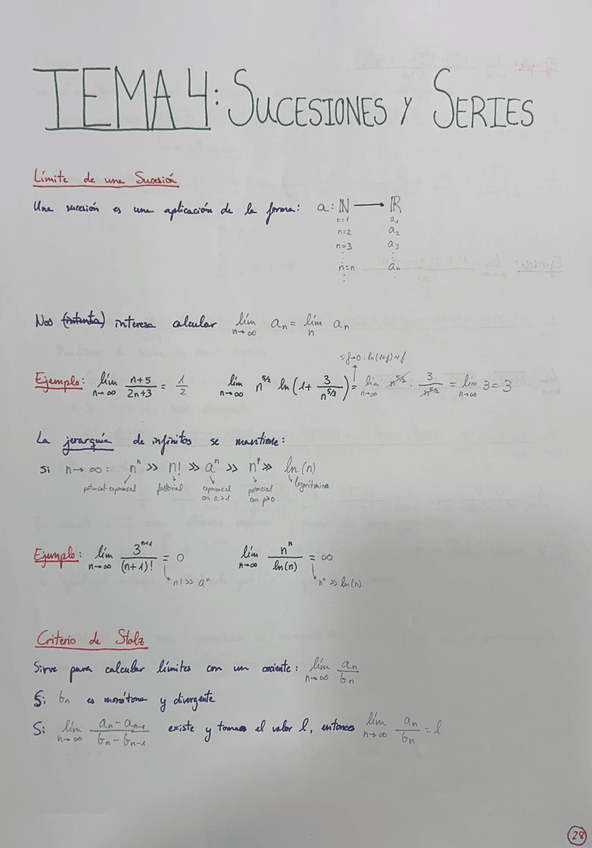 TEMA 4: SUCESIONES Y SERIES
Límite de una Sucesión
Una sucesión es una aplicación de la forma: a: ℕ → ℝ
n=1 a₁
n=2 a₂
n=3 a₃
⋮ ⋮
n=n aₙ
⋮ ⋮
Nos (intenta) interesa calcular lím_{n→∞} aₙ = lím_n aₙ
si f→0: ln(1+f)~f
Ejemplo: lím_{n→∞} (n+5)/(2n+3) = 1/2 lím_{n→∞} n^{5/2} ln(1 + 3/n^{5/2}) = lím_{n→∞} n^{5/2} · 3/n^{5/2} = lím_{n→∞} 3 = 3
La jerarquía de infinitos se mantiene:
Si n→∞: nⁿ >> n! >> aⁿ >> nᵖ >> ln(n)
potencial-exponencial factorial exponencial con a>1 potencial con p>0 logarítmica
Ejemplo: lím_{n→∞} 3^{n+1}/(n+1)! = 0 lím_{n→∞} nⁿ/ln(n) = ∞
n! >> aⁿ nⁿ >> ln(n)
Criterio de Stolz
Sirve para calcular límites con un cociente: lím_{n→∞} aₙ/bₙ
Si bₙ es monótona y divergente
Si lím_{n→∞} (aₙ − aₙ₋₁)/(bₙ − bₙ₋₁) existe y toma el valor l, entonces lím_{n→∞} aₙ/bₙ = l
28